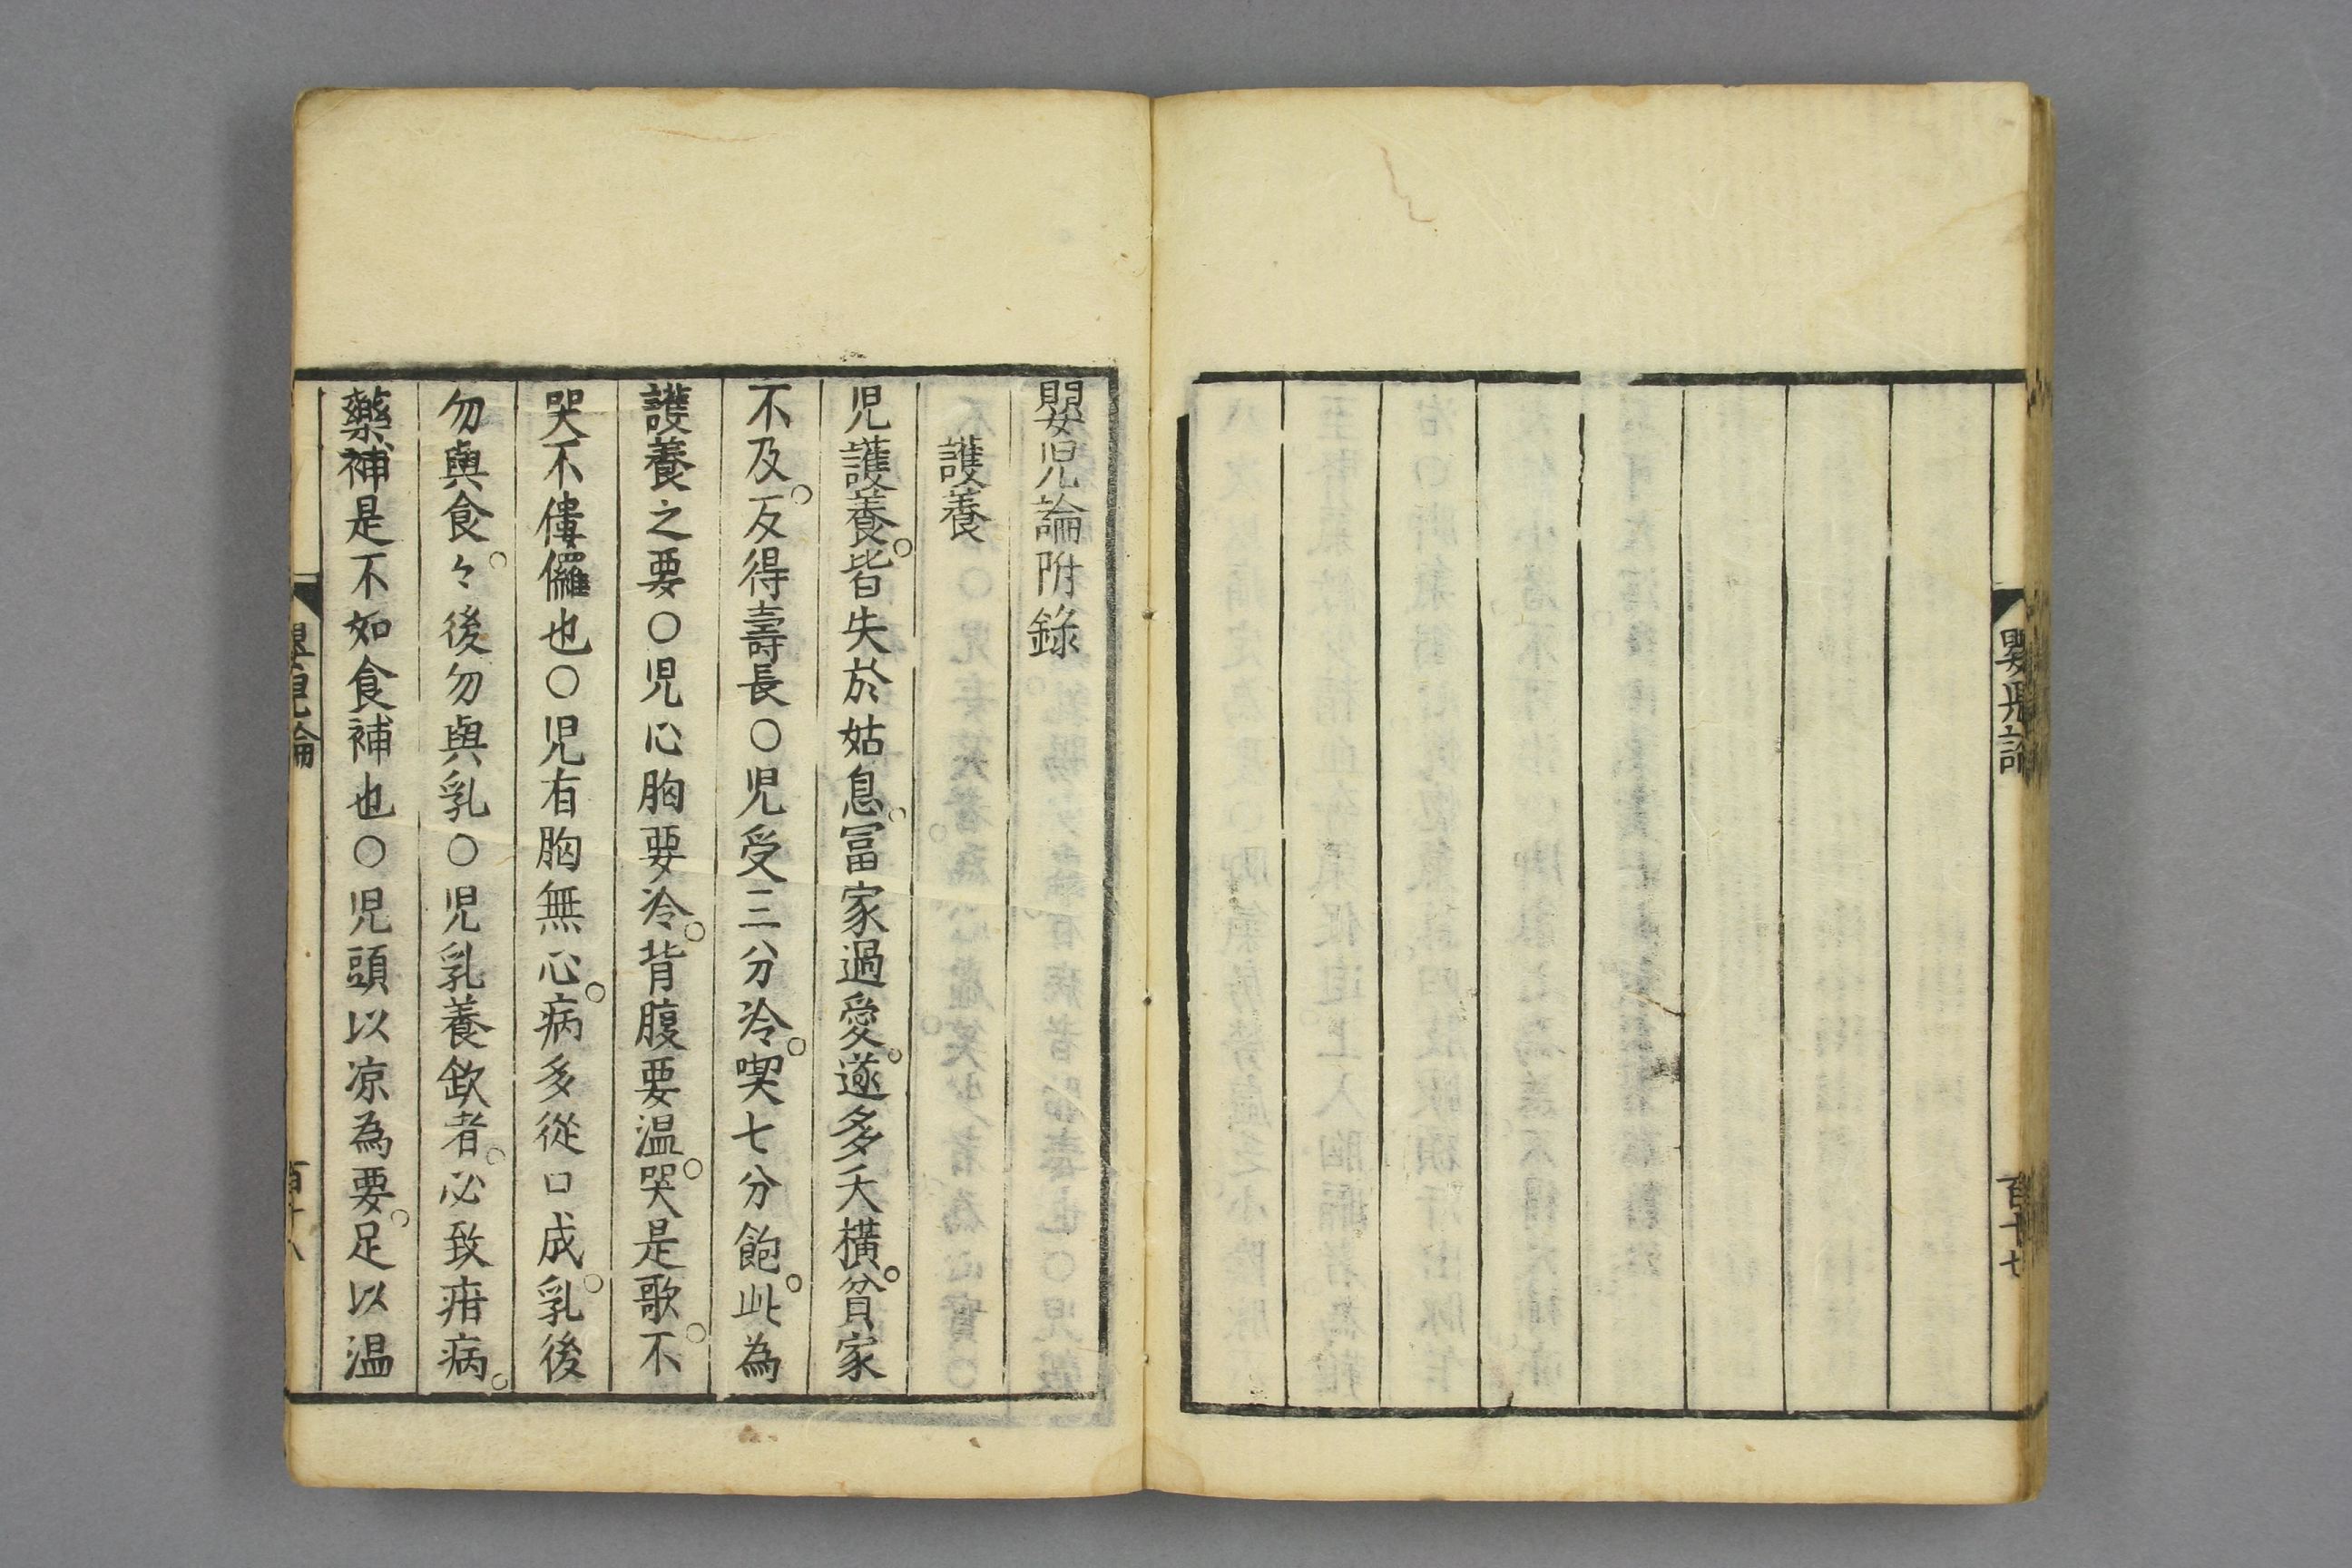 嬰児論
百十七
嬰児論附録
護養
児護養。皆失於姑息。冨家過愛。遂多夭横。貧家
不及。反得壽長〇児受三分冷。喫七分飽。此為
護養之要〇児心胸要冷。背腹要温。哭是歌。不
哭不僂儸也〇児有胸無心。病多從口成。乳後
勿與食。々後勿與乳〇児乳養欽者。必致疳病。
藥補是不如食補也〇児頭以凉為要。足以温
嬰児論
百十八